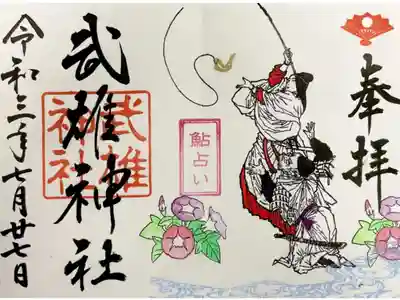 奉拝
鮎占い
武雄神社
武雄神社
令和二年七月廿七日